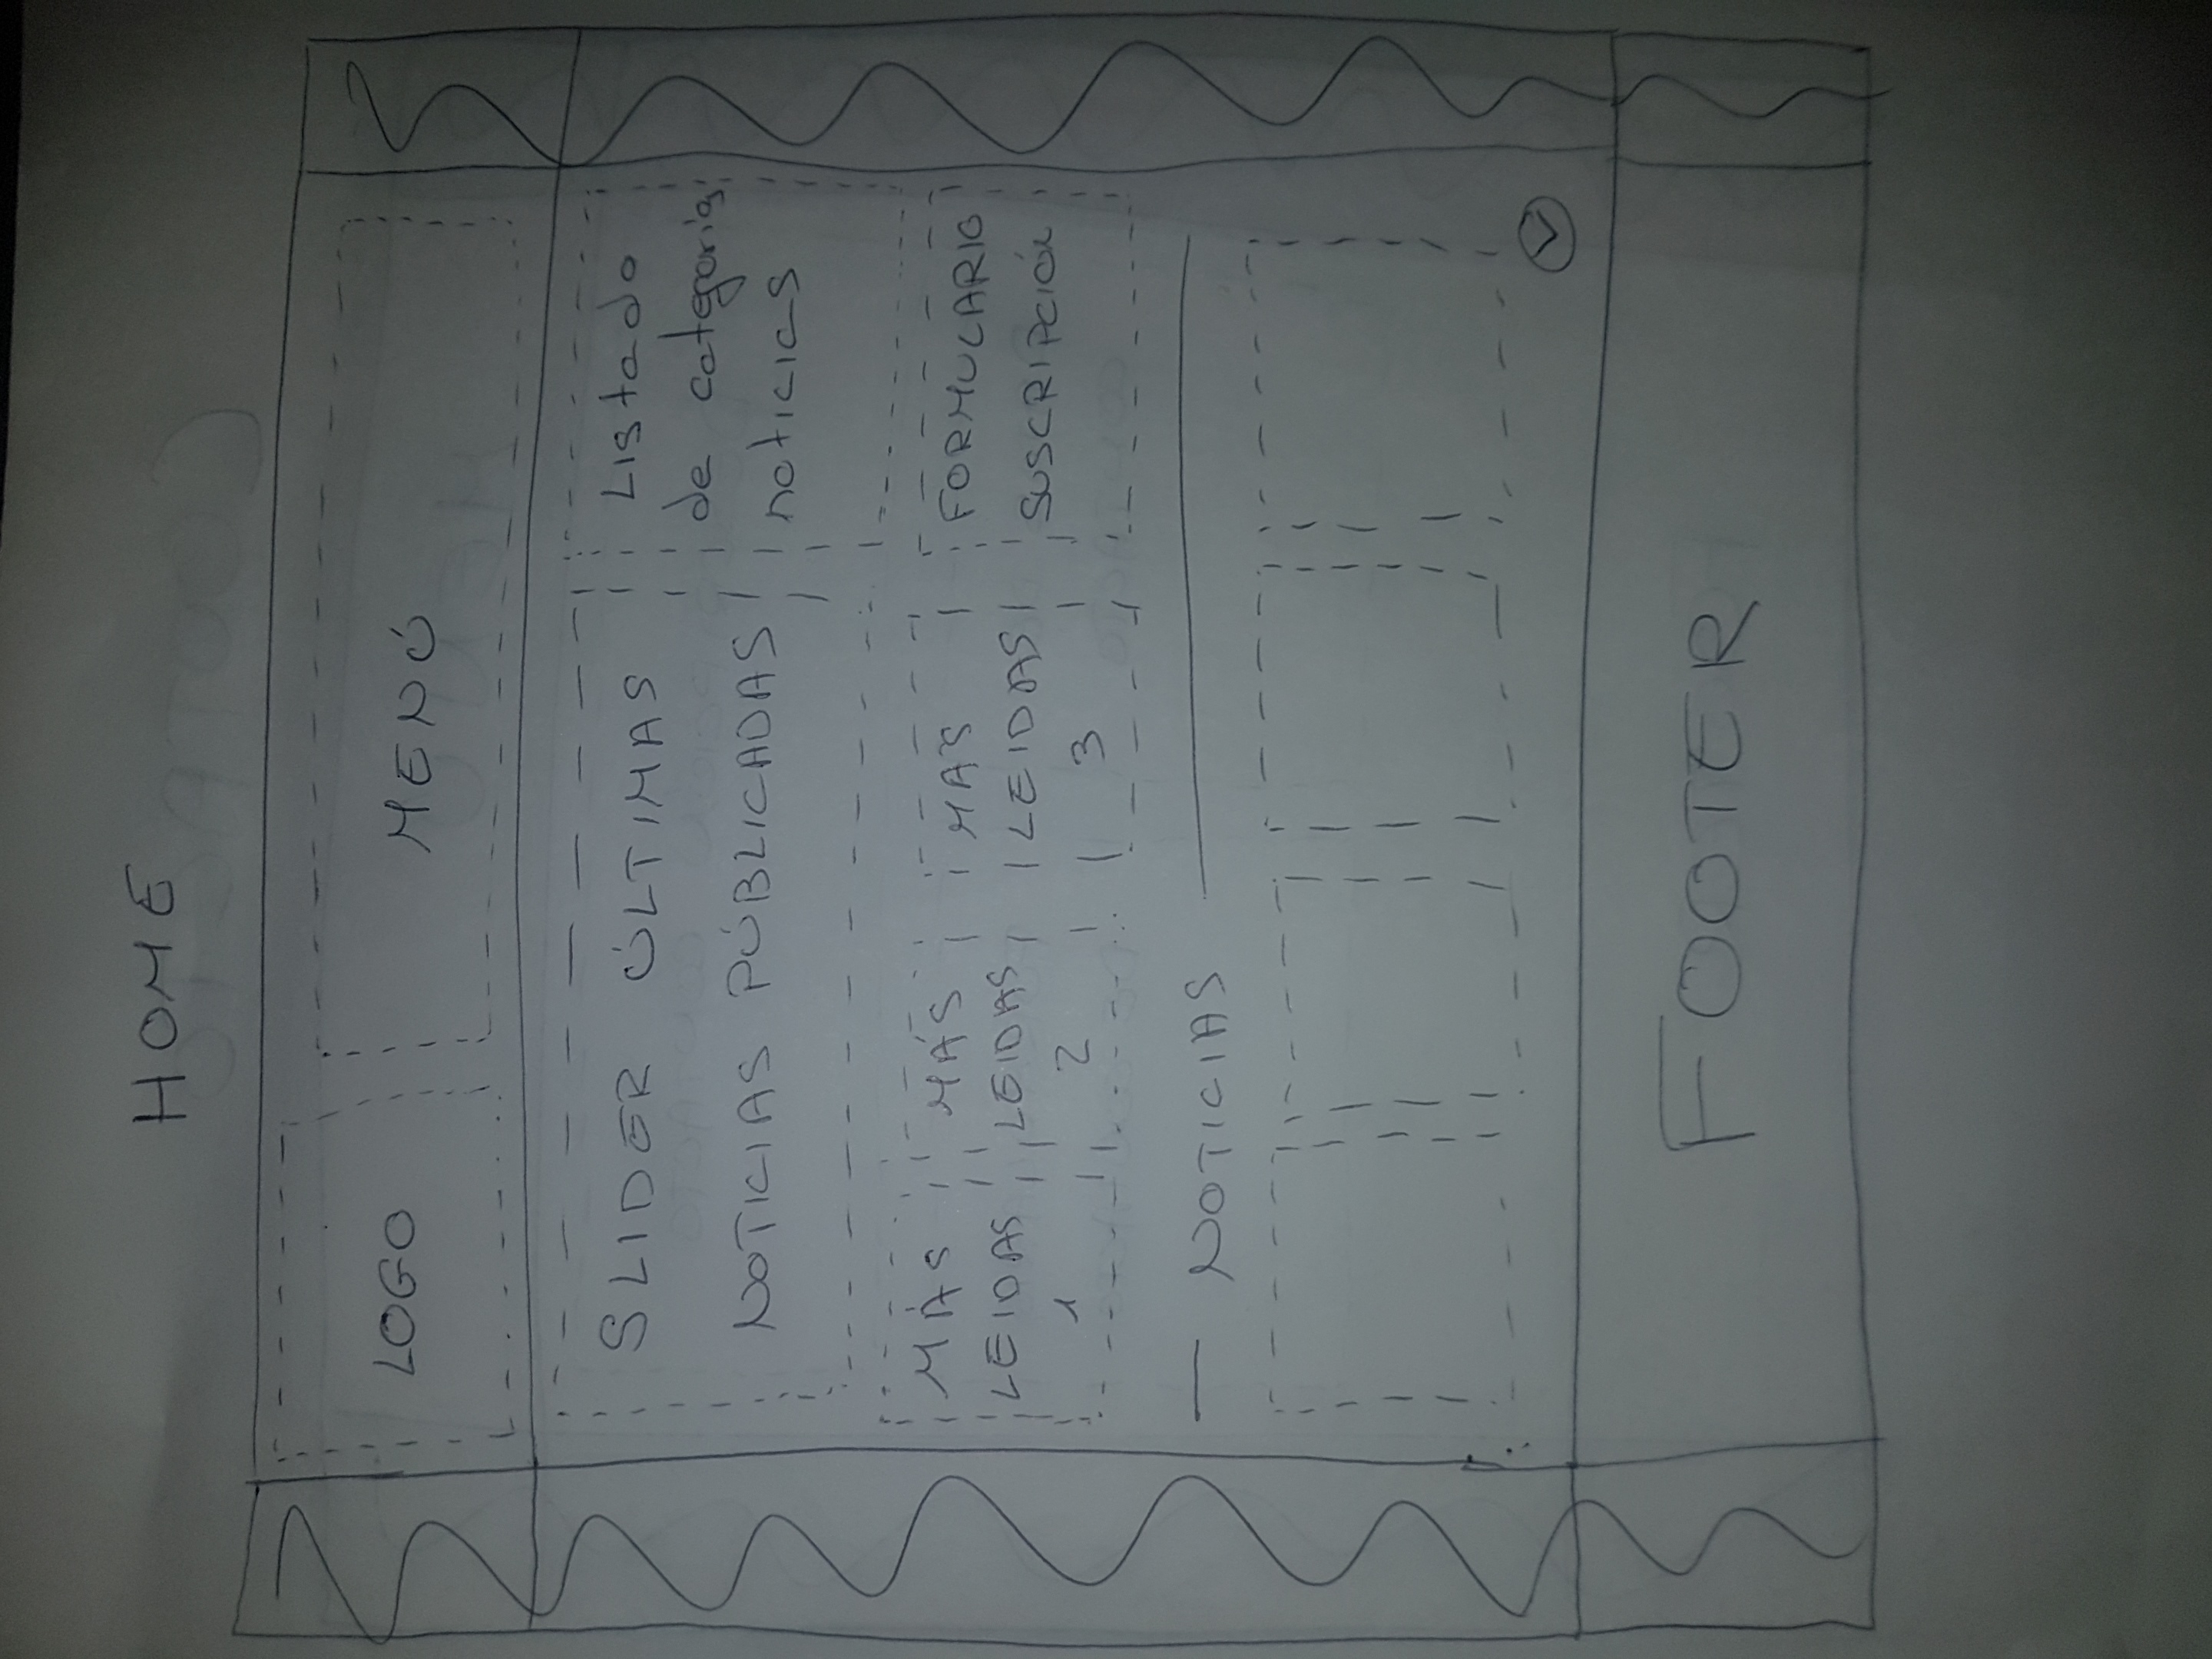 HOME
LOGO
MENÚ
SLIDER ÚLTIMAS
NOTICIAS PÚBLICADAS
Listado
de categorias
noticias
MÁS
LEIDAS
1
MÁS
LEIDAS
2
MÁS
LEIDAS
3
FORMULARIO
SUSCRIPCIÓN
NOTICIAS
FOOTER